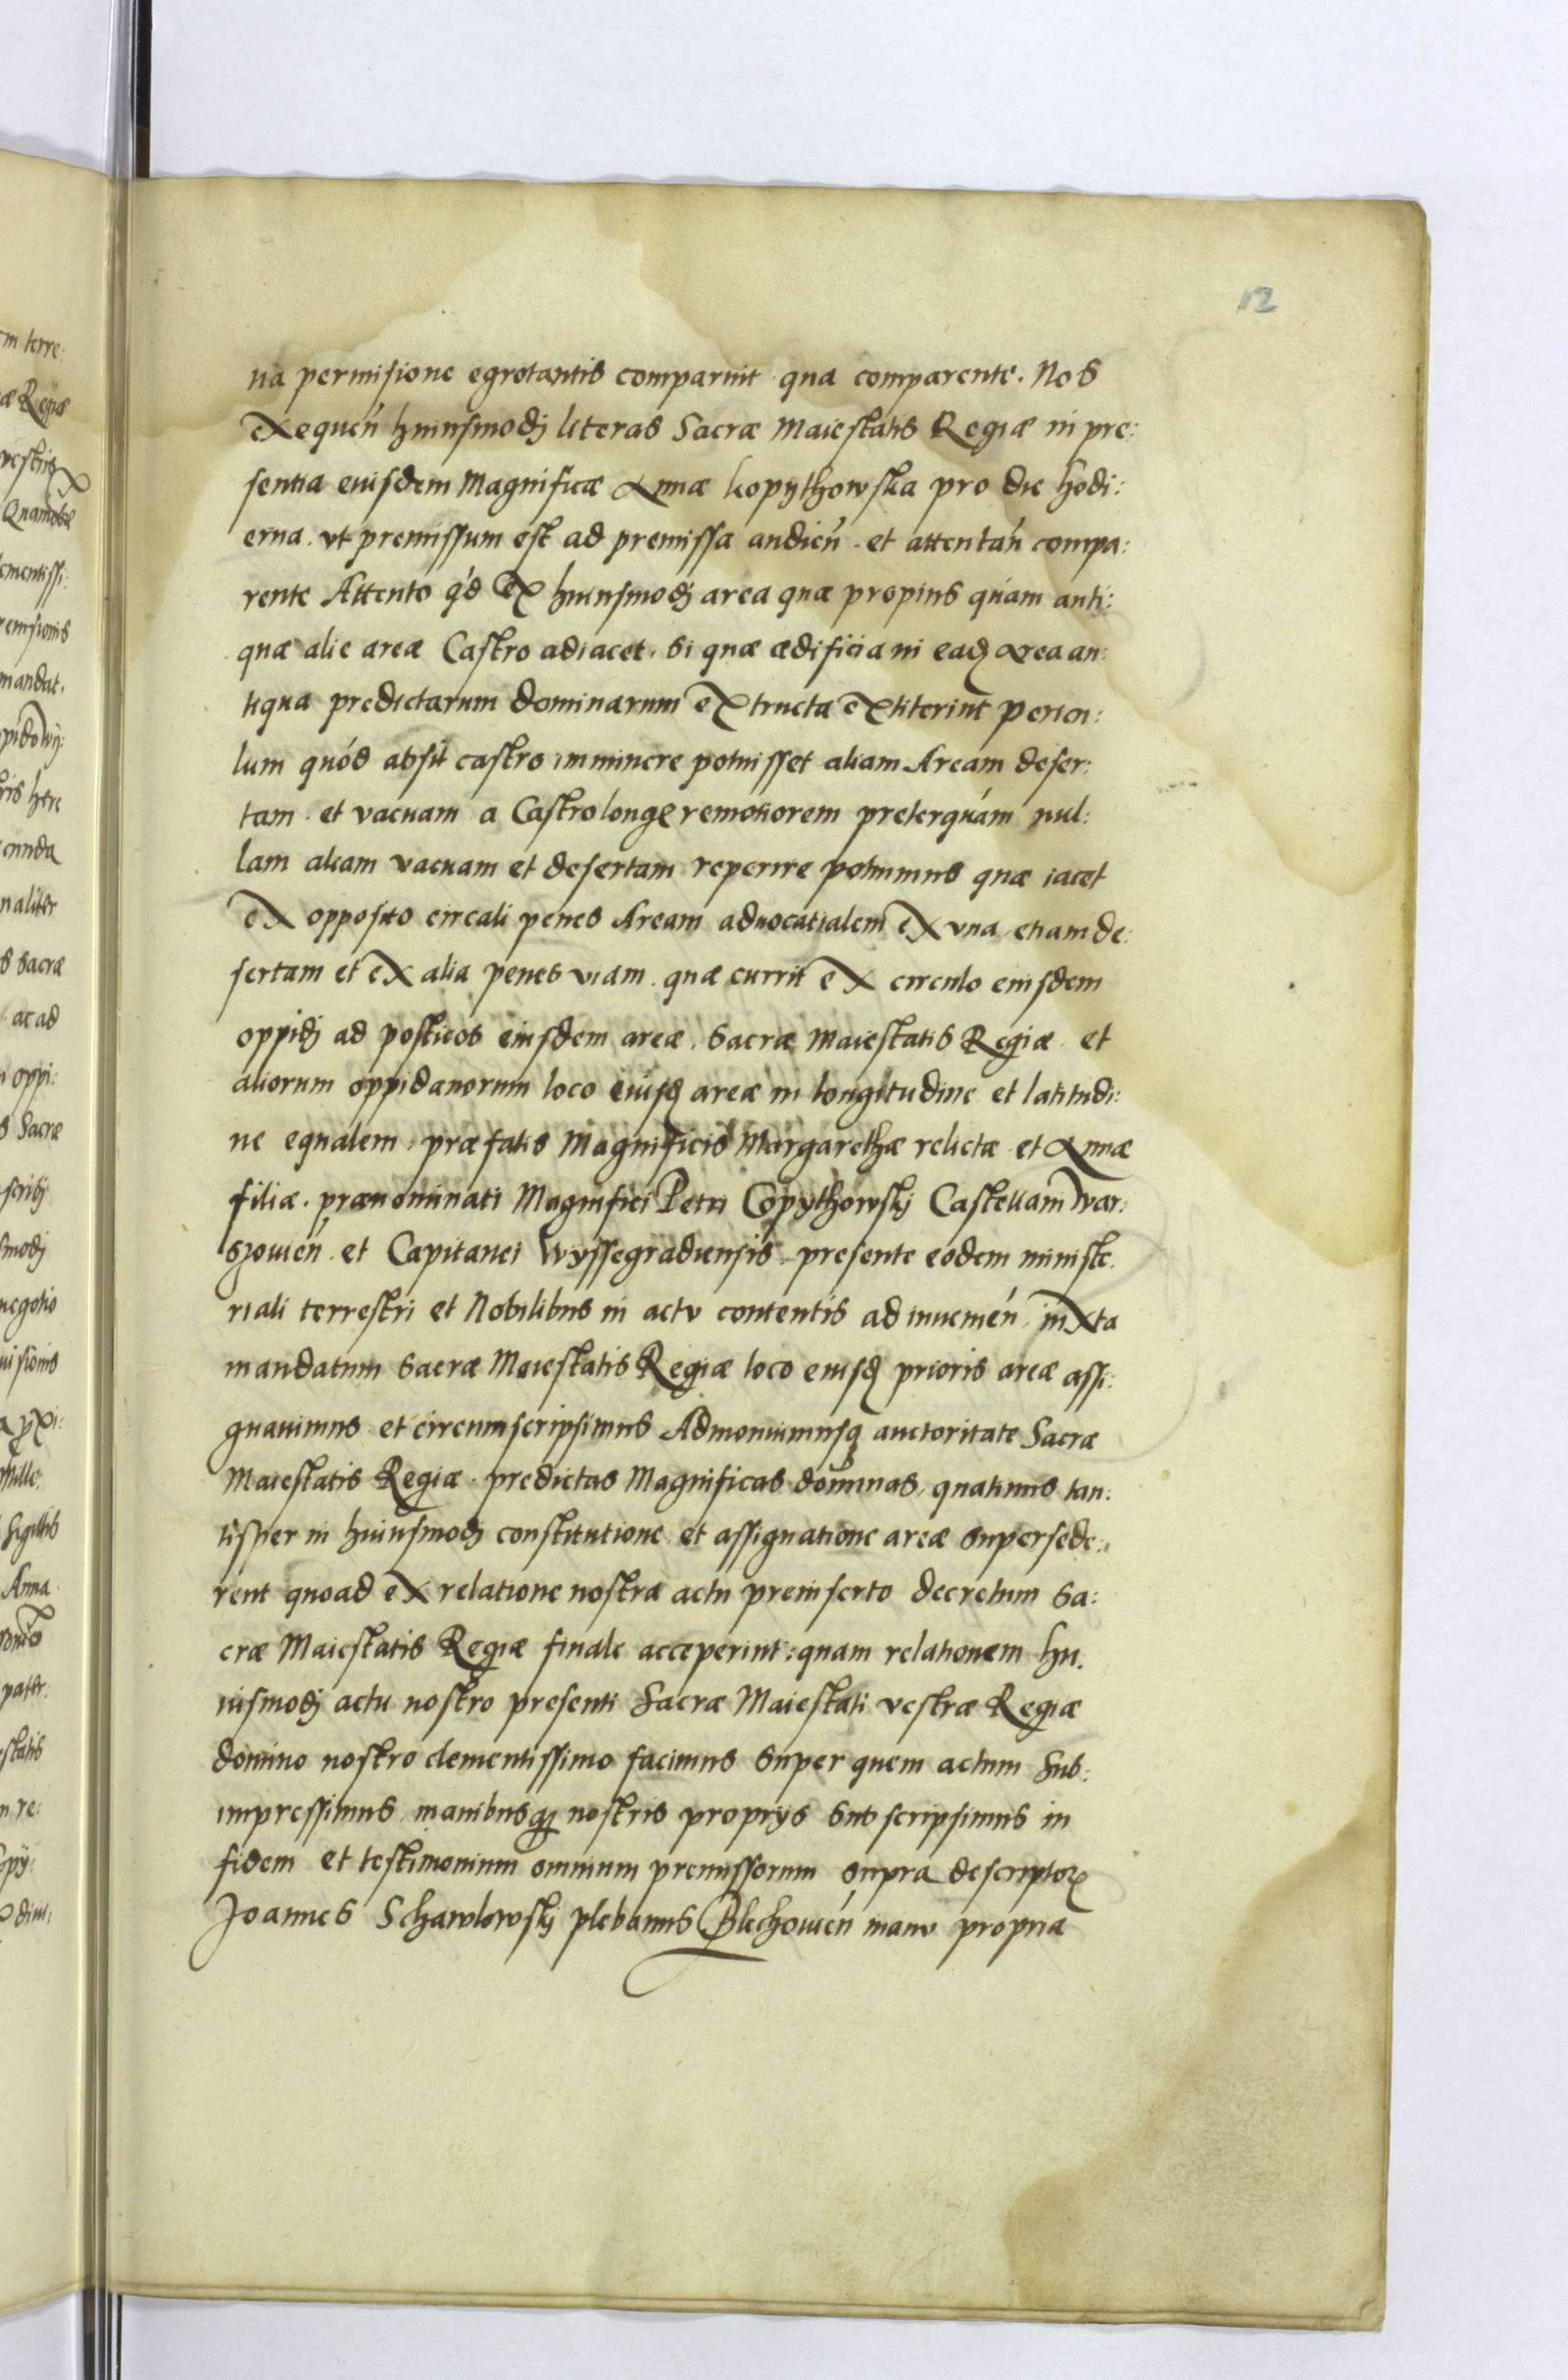 12
na permisione egrotantis comparuit qua comparente. Nos
exequeń huiusmodj literas Sacræ Maiestatis Regiæ in pre:
sentia eiusdem Magnificæ Annæ kopythowska pro die hodi:
erna. vt premissum est ad premissa audień. et attentań compa:
rente Attento q́d ex huiusmodj area quæ propius quám anti:
quæ aliæ areæ Castro adiacet. si quæ ædificia in eadȩ Area an:
tiqua predictarum dominarum extructa extiterint pericu:
lum quód absit castro imminere potuisset aliam Aream deser:
tam. et vacuam a Castro longe remotiorem preterquám nul:
lam aliam vacuam et desertam reperire potuimus quæ iacet
ex opposito circali penes Aream aduocatialem ex vna etiam de:
sertam et ex alia penes viam. quæ currit ex circulo eiusdem
oppidj ad posticos eiusdem areæ. Sacræ Maiestatis Regiæ et
aliorum oppidanorum loco eiusdȩ areæ in longitudine et latitudi:
ne equalem, præfatis Magnificis Margarethæ relictæ et Annæ
filiæ. prænominati Magnifici Petri Copythowskj Castellani War:
szouień. et Capitanei Wyssegradiensis presente eodem ministe.
riali terrestri et Nobilibus in actu contentis ad inuenień iuxta
mandatum Sacræ Maiestatis Regiæ loco eiusdȩ prioris areæ assi:
gnauimus et circumscripsimus Admonuimusq auctoritate Sacræ
Maiestatis Regiæ. predictas Magnificas dominas, quatinus tan:
tisper in huiusmodj constitutione et assignatione areæ supersede:
rent quoad ex relatione nostra actu preinserto decretum Sa:
cræ Maiestatis Regiæ finale acceperint: quam relationem hu.
iusmodj actu nostro presenti Sacræ Maiestati vestræ Regiæ
domino nostro clementissimo facimus super quem actum Sub:
impressimus manibusq nostris proprys subscripsimus in
fidem et testimonium omnium premissorum supra descriptoꝝ
Joannes Schawlowskj plebanus Blechouień manu propria